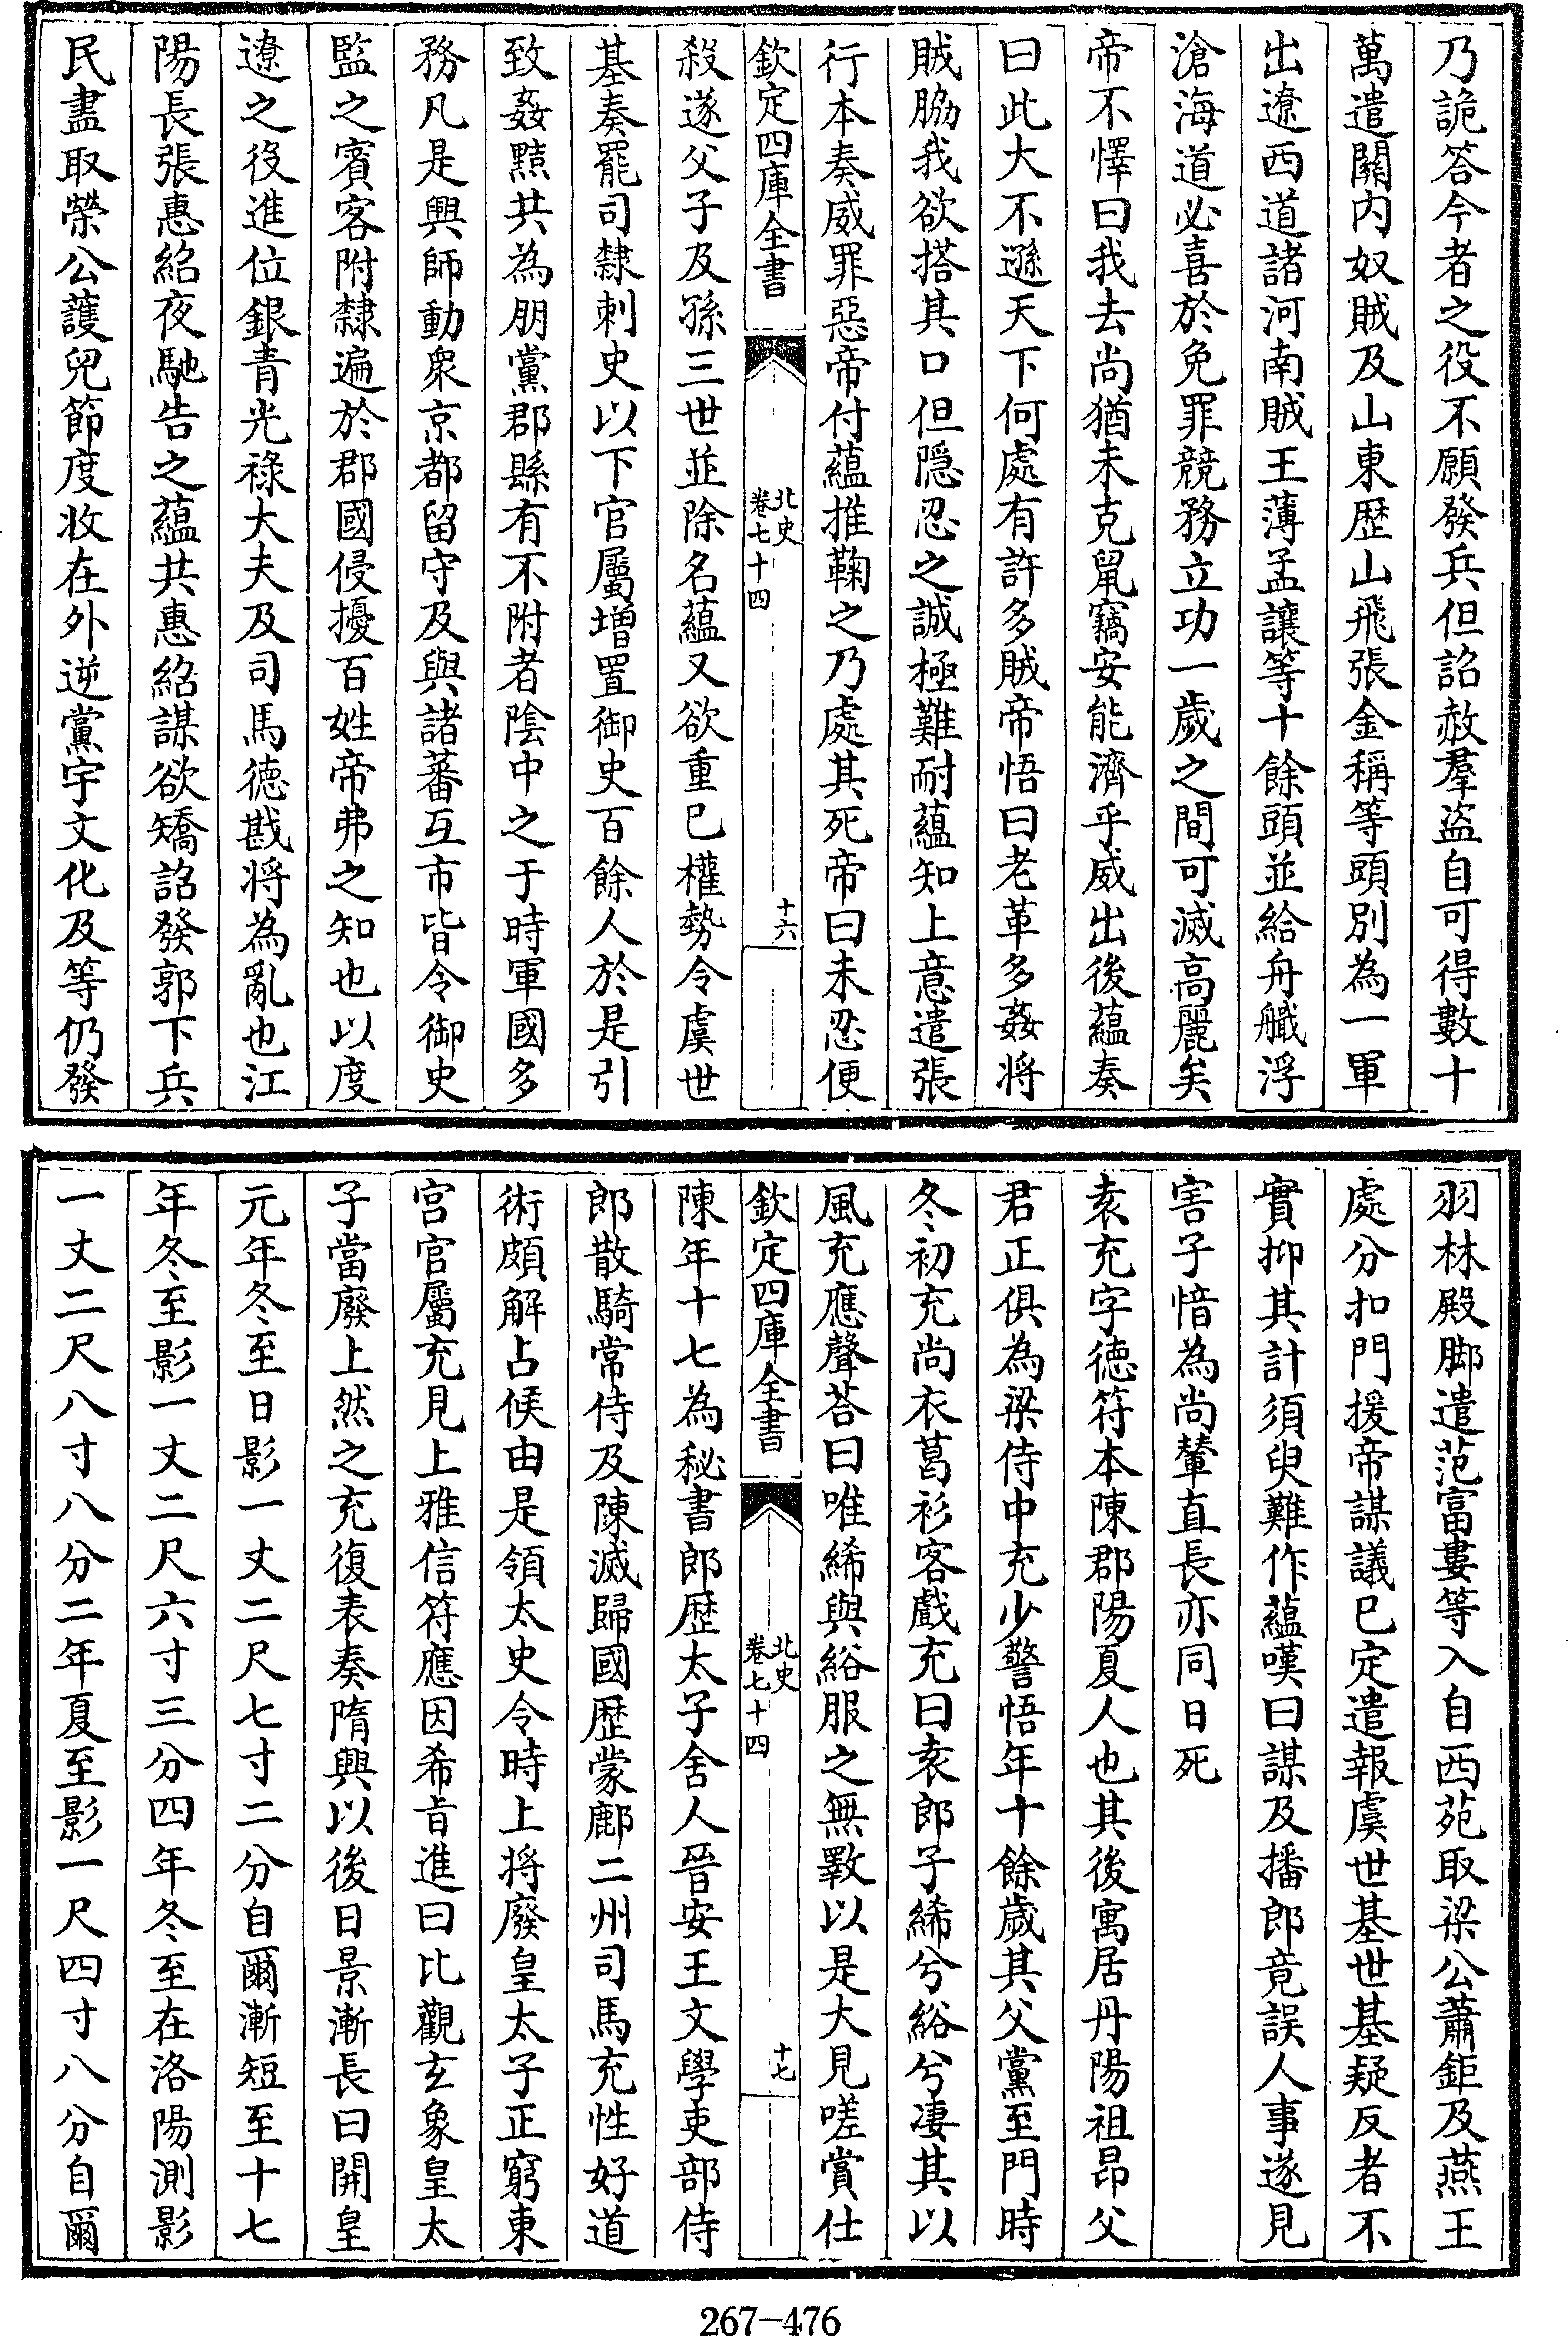 乃詭答今者之役不願發兵但詔赦羣盜自可得數十
萬遣關内奴賊及山東歴山飛張金稱等頭別為一軍
出遼西道諸河南賊王薄孟讓等十餘頭並給舟艥浮
滄海道必喜於免罪競務立功一歲之間可滅高麗矣
帝不懌曰我去尚猶未克鼠竊安能濟乎威出後蘊奏
曰此大不遜天下何處有許多賊帝悟曰老革多姦將
賊脇我欲搭其口但隠忍之誠極難耐蘊知上意遣張
行本奏威罪惡帝付蘊推鞠之乃處其死帝曰未忍便
欽定四庫全書
北史
卷七十四
十六
殺遂父子及孫三世並除名蘊又欲重已權勢令虞世
基奏罷司隸刺史以下官屬增置御史百餘人於是引
致姦黠共為朋黨郡縣有不附者陰中之于時軍國多
務凡是興師動衆京都留守及與諸蕃互市皆令御史
監之賓客附隸遍於郡國侵擾百姓帝弗之知也以度
遼之役進位銀青光祿大夫及司馬德戡將為亂也江
陽長張惠紹夜馳告之蘊共惠紹謀欲矯詔發郭下兵
民盡取榮公護兒節度收在外逆黨宇文化及等仍發
羽林殿脚遣范富婁等入自西苑取梁公蕭鉅及燕王
處分扣門援帝謀議已定遣報虞世基世基疑反者不
實抑其計須臾難作蘊嘆曰謀及播郎竟誤人事遂見
害子愔為尚輦直長亦同日死
袁充字德符本陳郡陽夏人也其後寓居丹陽祖昂父
君正俱為梁侍中充少警悟年十餘歲其父黨至門時
冬初充尚衣葛衫客戲充曰袁郎子絺兮綌兮凄其以
風充應聲荅曰唯絺與綌服之無斁以是大見嗟賞仕
欽定四庫全書
北史
卷七十四
十七
陳年十七為秘書郎歴太子舍人晉安王文學吏部侍
郎散騎常侍及陳滅歸國歴蒙鄜二州司馬充性好道
術頗解占候由是領太史令時上將廢皇太子正窮東
宮官屬充見上雅信符應因希旨進曰比觀玄象皇太
子當廢上然之充復表奏隋興以後日景漸長曰開皇
元年冬至日影一丈二尺七寸二分自爾漸短至十七
年冬至影一丈二尺六寸三分四年冬至在洛陽測影
一丈二尺八寸八分二年夏至影一尺四寸八分自爾
267-476